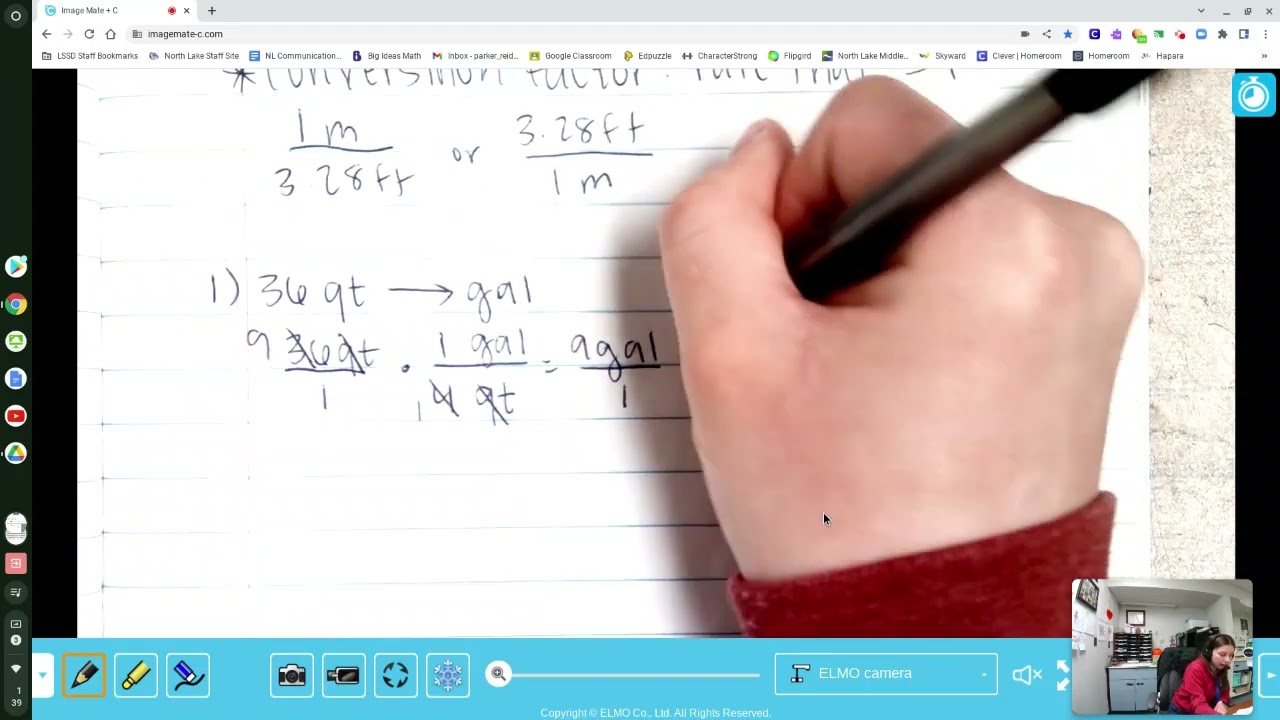 Image Mate + C
imagemate-c.com
LSSD Staff Bookmarks North Lake Staff Site NL Communication... Big Ideas Math Inbox - parker_reid... Google Classroom Edpuzzle CharacterStrong Flipgird North Lake Middle... Skyward Clever | Homeroom Homeroom Hapara
*Conversion factor: rate that = 1
1 m
3.28ft
or
3.28ft
1 m
1) 36 qt → gal
9 36qt · 1 gal = 9gal
1 1 4 qt 1
ELMO camera
1
39
Copyright © ELMO Co., Ltd. All Rights Reserved.